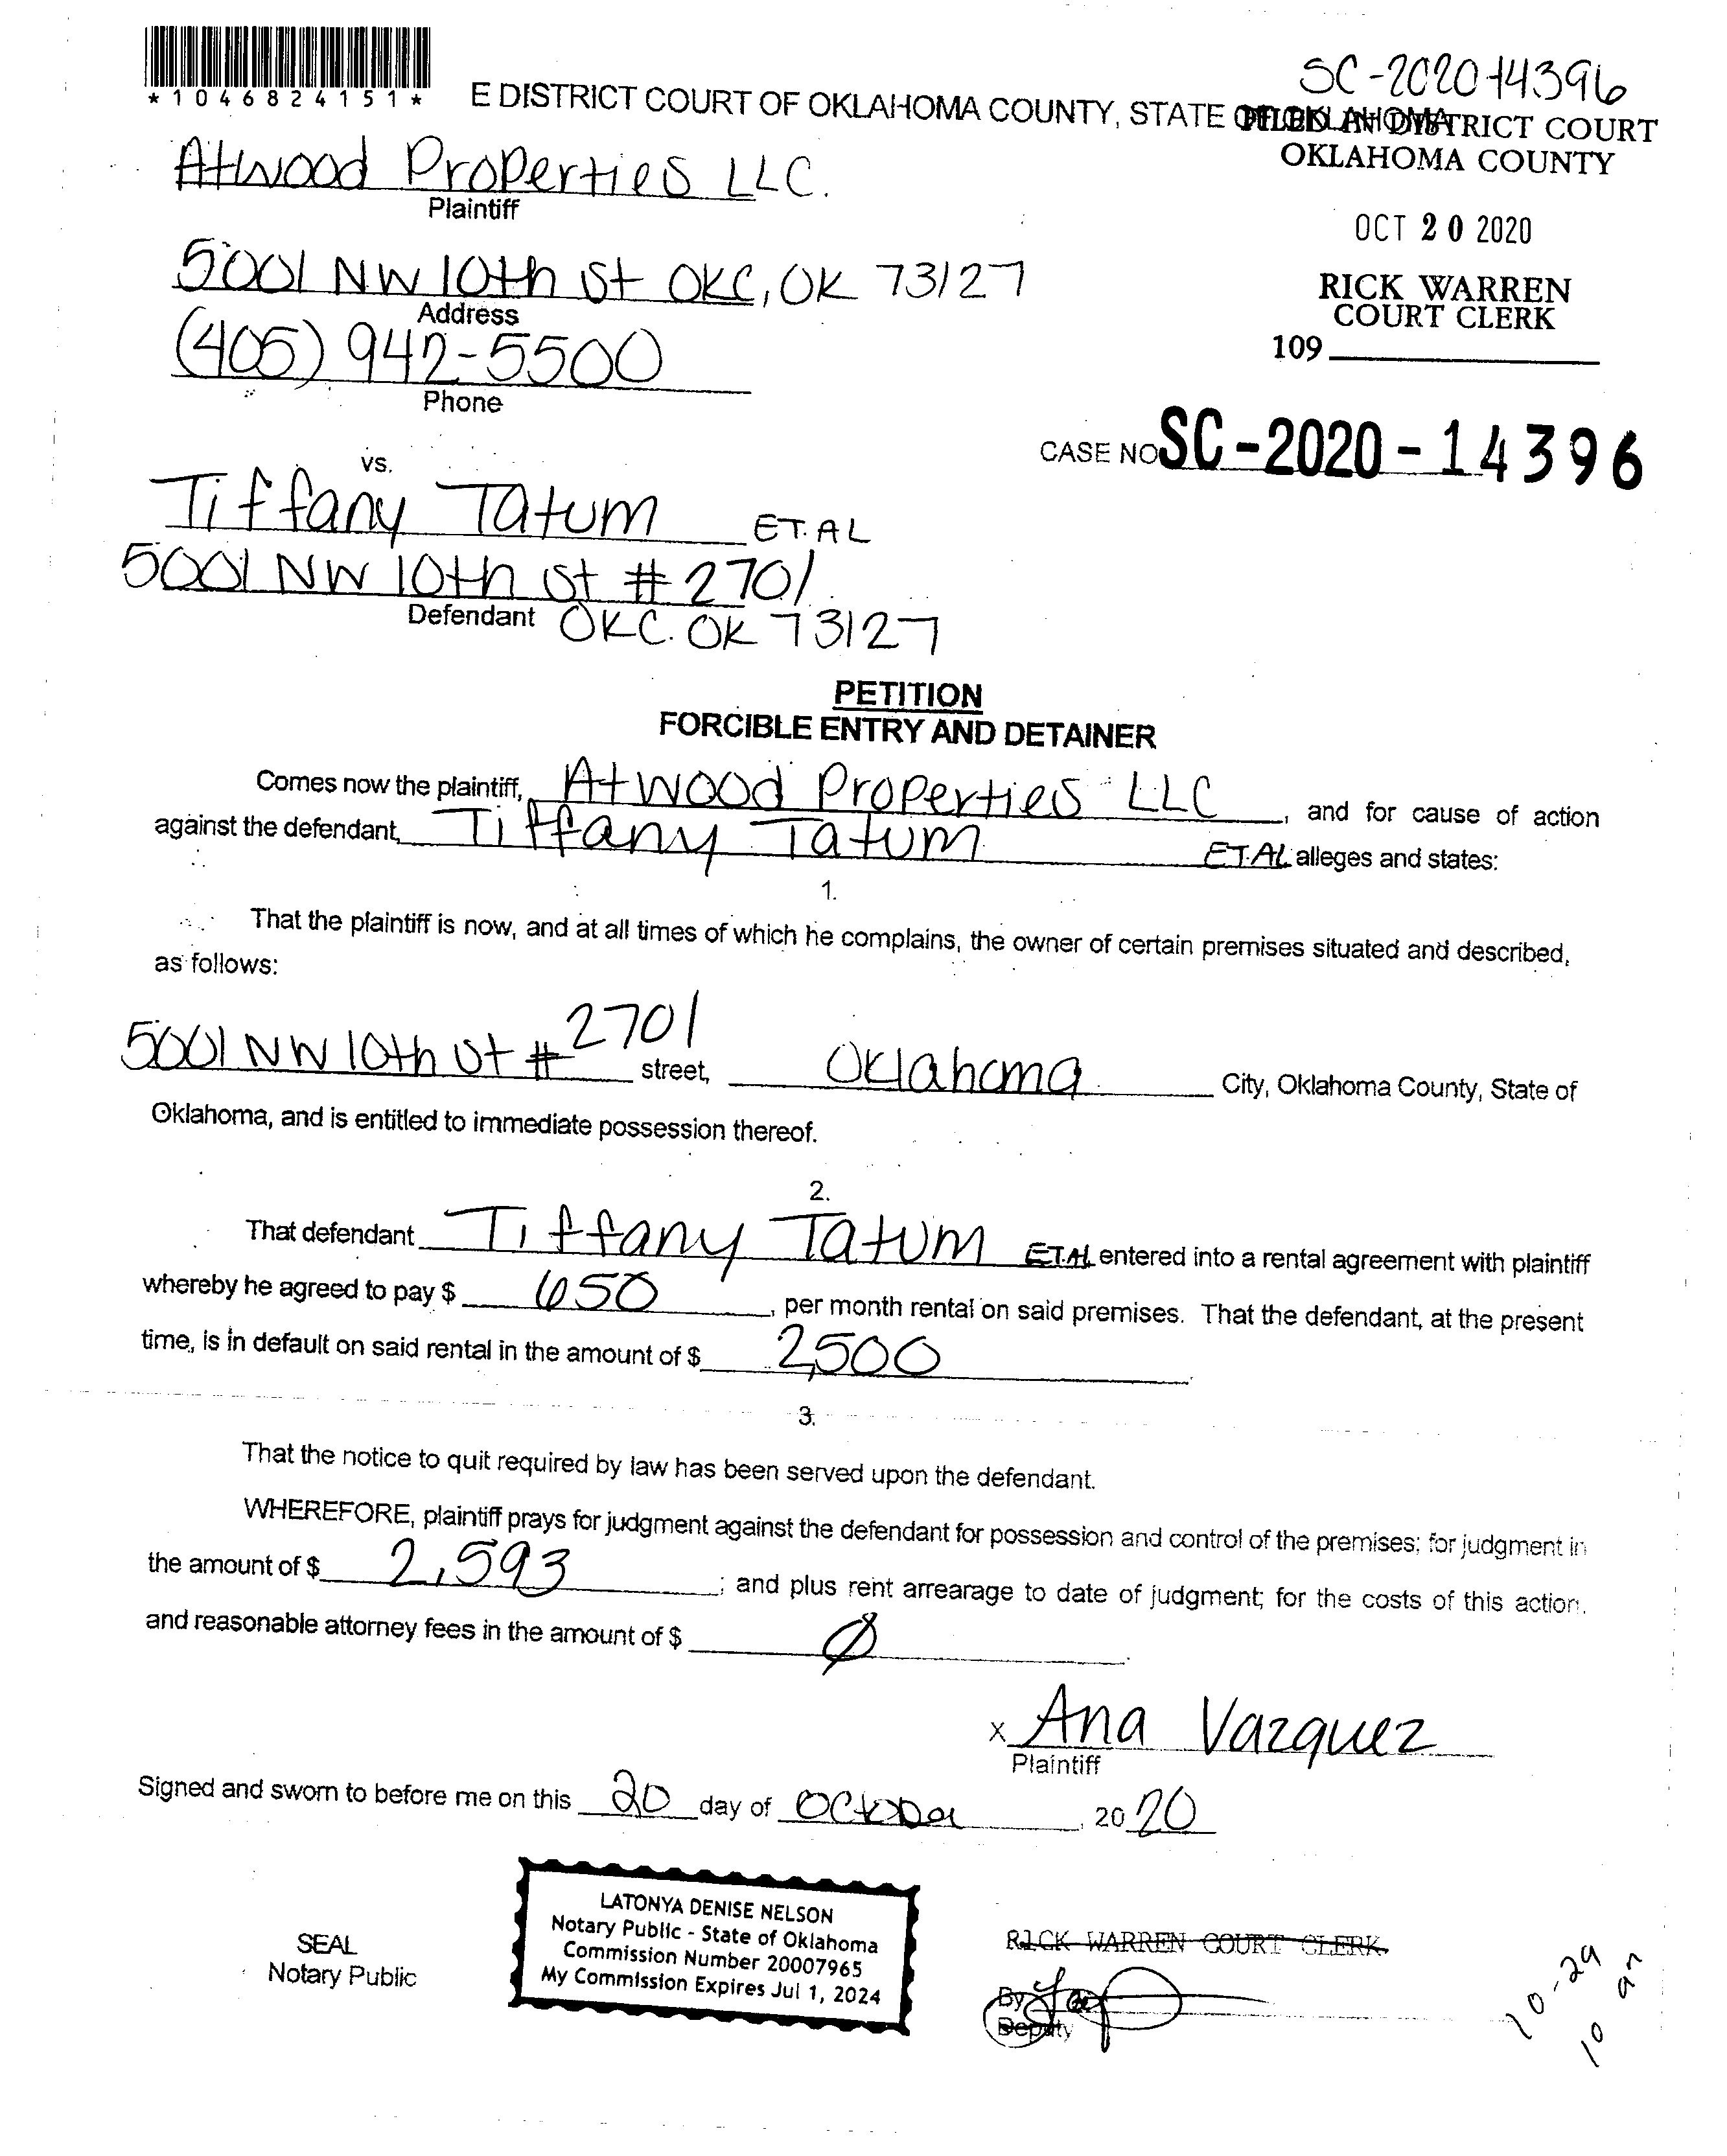 *1046824151*
SC-2020-14396
E DISTRICT COURT OF OKLAHOMA COUNTY, STATE OF OKLAHOMA
FILED IN DISTRICT COURT
OKLAHOMA COUNTY
Atwood Properties LLC.
Plaintiff
OCT 20 2020
5001 NW 10th St OKC, OK 73127
Address
RICK WARREN
COURT CLERK
(405) 942-5500
109
Phone
CASE NO SC-2020-14396
vs.
Tiffany Tatum ET.AL
5001 NW 10th St # 2701
Defendant OKC. OK 73127
PETITION
FORCIBLE ENTRY AND DETAINER
Comes now the plaintiff, Atwood Properties LLC, and for cause of action
against the defendant, Tiffany Tatum ET.AL alleges and states:
1.
That the plaintiff is now, and at all times of which he complains, the owner of certain premises situated and described,
as follows:
5001 NW 10th St # 2701 street, Oklahoma City, Oklahoma County, State of
Oklahoma, and is entitled to immediate possession thereof.
2.
That defendant Tiffany Tatum ET.AL entered into a rental agreement with plaintiff
whereby he agreed to pay $ 650, per month rental on said premises. That the defendant, at the present
time, is in default on said rental in the amount of $ 2,500
3.
That the notice to quit required by law has been served upon the defendant.
WHEREFORE, plaintiff prays for judgment against the defendant for possession and control of the premises; for judgment in
the amount of $ 2,593; and plus rent arrearage to date of judgment; for the costs of this action.
and reasonable attorney fees in the amount of $ Ø.
x Ana Vazquez
Plaintiff
Signed and sworn to before me on this 20 day of October, 2020
SEAL
Notary Public
LATONYA DENISE NELSON
Notary Public - State of Oklahoma
Commission Number 20007965
My Commission Expires Jul 1, 2024
RICK WARREN COURT CLERK
By
Deputy
10-29
10 am